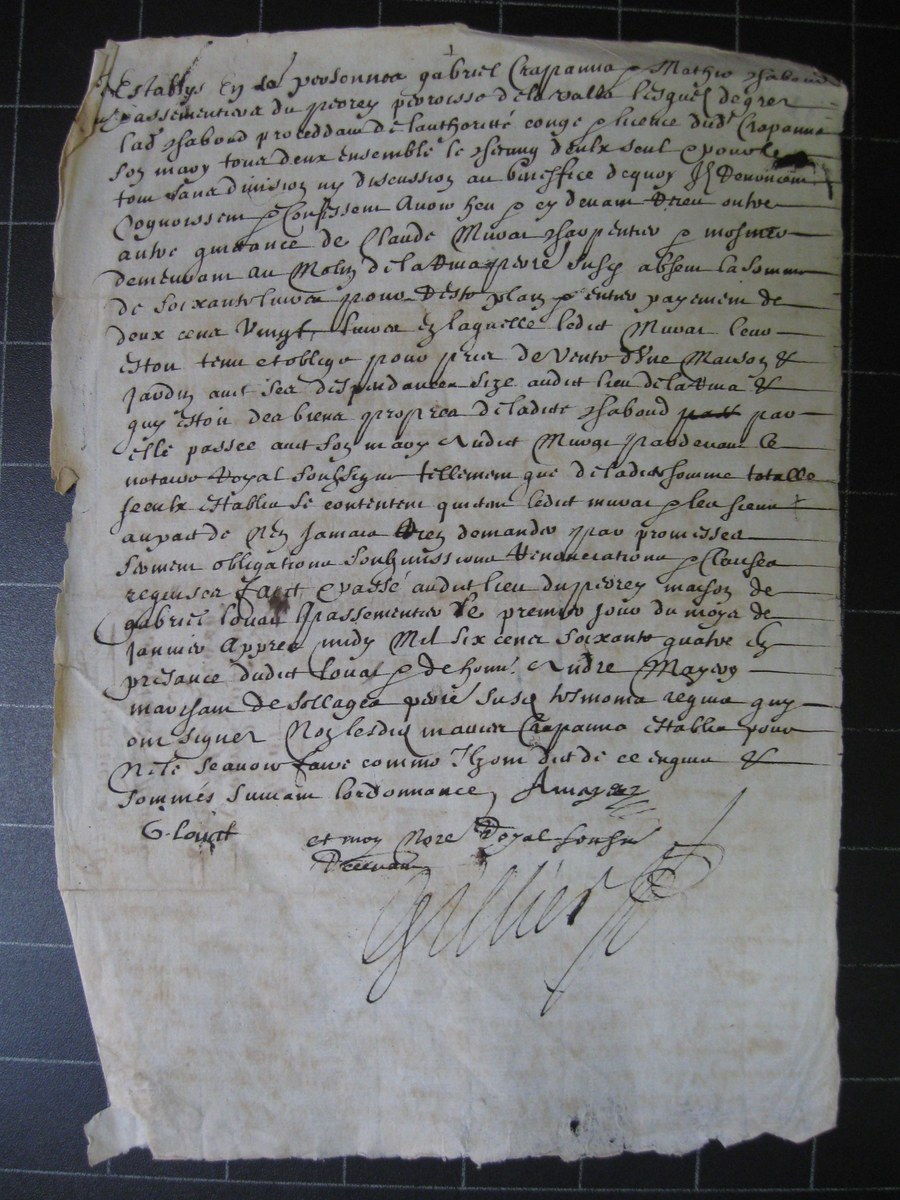 Establys En personnes gabriel Crapanna & Mathie Chaboud
passementiers du perrey parroisse de la valla lesquelz de grez
lad Chaboud proceddant de lauthorité conge & licence dud Crapanna
son mary tous deux ensemble le chacung deulx seul & pour le
tout sans division ny discussion au beneffice de quoy Ilz Renoncent
Cognoissent & Confessent Avoir heu & cy devant Receu oultre
autre quittance de Claude Murat charpentier & mosnier
demeurant au Molin de la susd absent la somme
de soixante livres pour Reste plain & entier payement de
deux cens Vingt livres En laquelle ledict Murat leur
estoit tenu et oblige pour prix de Vente d'Une Maison &
Jardin avec ses deppendances size audict lieu de la &
quy estoit des biens propres de ladicte Chaboud par
elle passee avec son mary Audict Murat pardevant le
notaire Royal soubsigne tellement que de ladicte somme totalle
sceulx establis se contentent quittent ledict murat & les siens
au pact de N'en Jamais Rien demander par promesses
serment obligations soubmissions Renonciations & Clauses
requises faict & passé audict lieu du perrey maison de
gabriel louat passementier le premier Jour du moys de
Janvier Appres midy Mil six cens soixante quatre En
presance dudict louat & de honn. Andre Mayery
marchant de sollages susd tesmoins requis quy
ont signer Non lesdictz mariez Crapanna establis pour
Ne le scavoir faire comme Ilz ont dict de ce enquis &
sommés suivant lordonnance, Amayery
G. louat
et moy Nore Royal soubsne
Recevant
Gillier